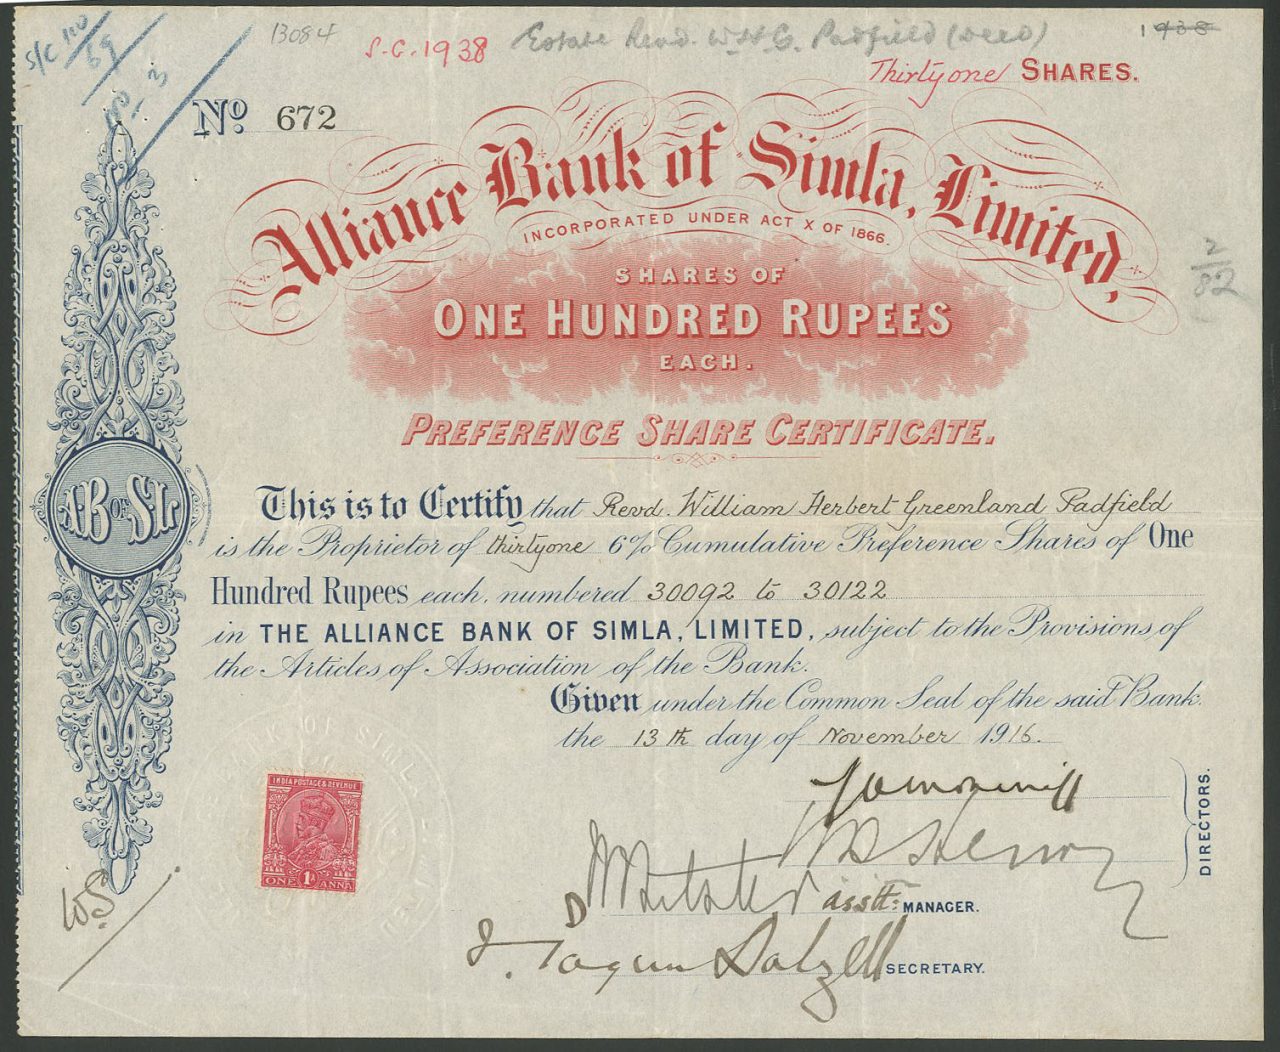 13084
S.C. 1938
Estate Revd. W.H.G. Padfield (decd)
1938
Thirtyone SHARES.
No. 672
Alliance Bank of Simla, Limited,
INCORPORATED UNDER ACT X OF 1866.
SHARES OF
ONE HUNDRED RUPEES
EACH.
PREFERENCE SHARE CERTIFICATE.
AB OF SL
This is to Certify that Revd. William Herbert Greenland Padfield
is the Proprietor of thirtyone 6% Cumulative Preference Shares of One
Hundred Rupees each, numbered 30092 to 30122
in THE ALLIANCE BANK OF SIMLA, LIMITED, subject to the Provisions of
the Articles of Association of the Bank.
Given under the Common Seal of the said Bank.
the 13th day of November 1916.
DIRECTORS.
INDIA POSTAGE & REVENUE
ONE 1A ANNA
asstt: MANAGER.
SECRETARY.